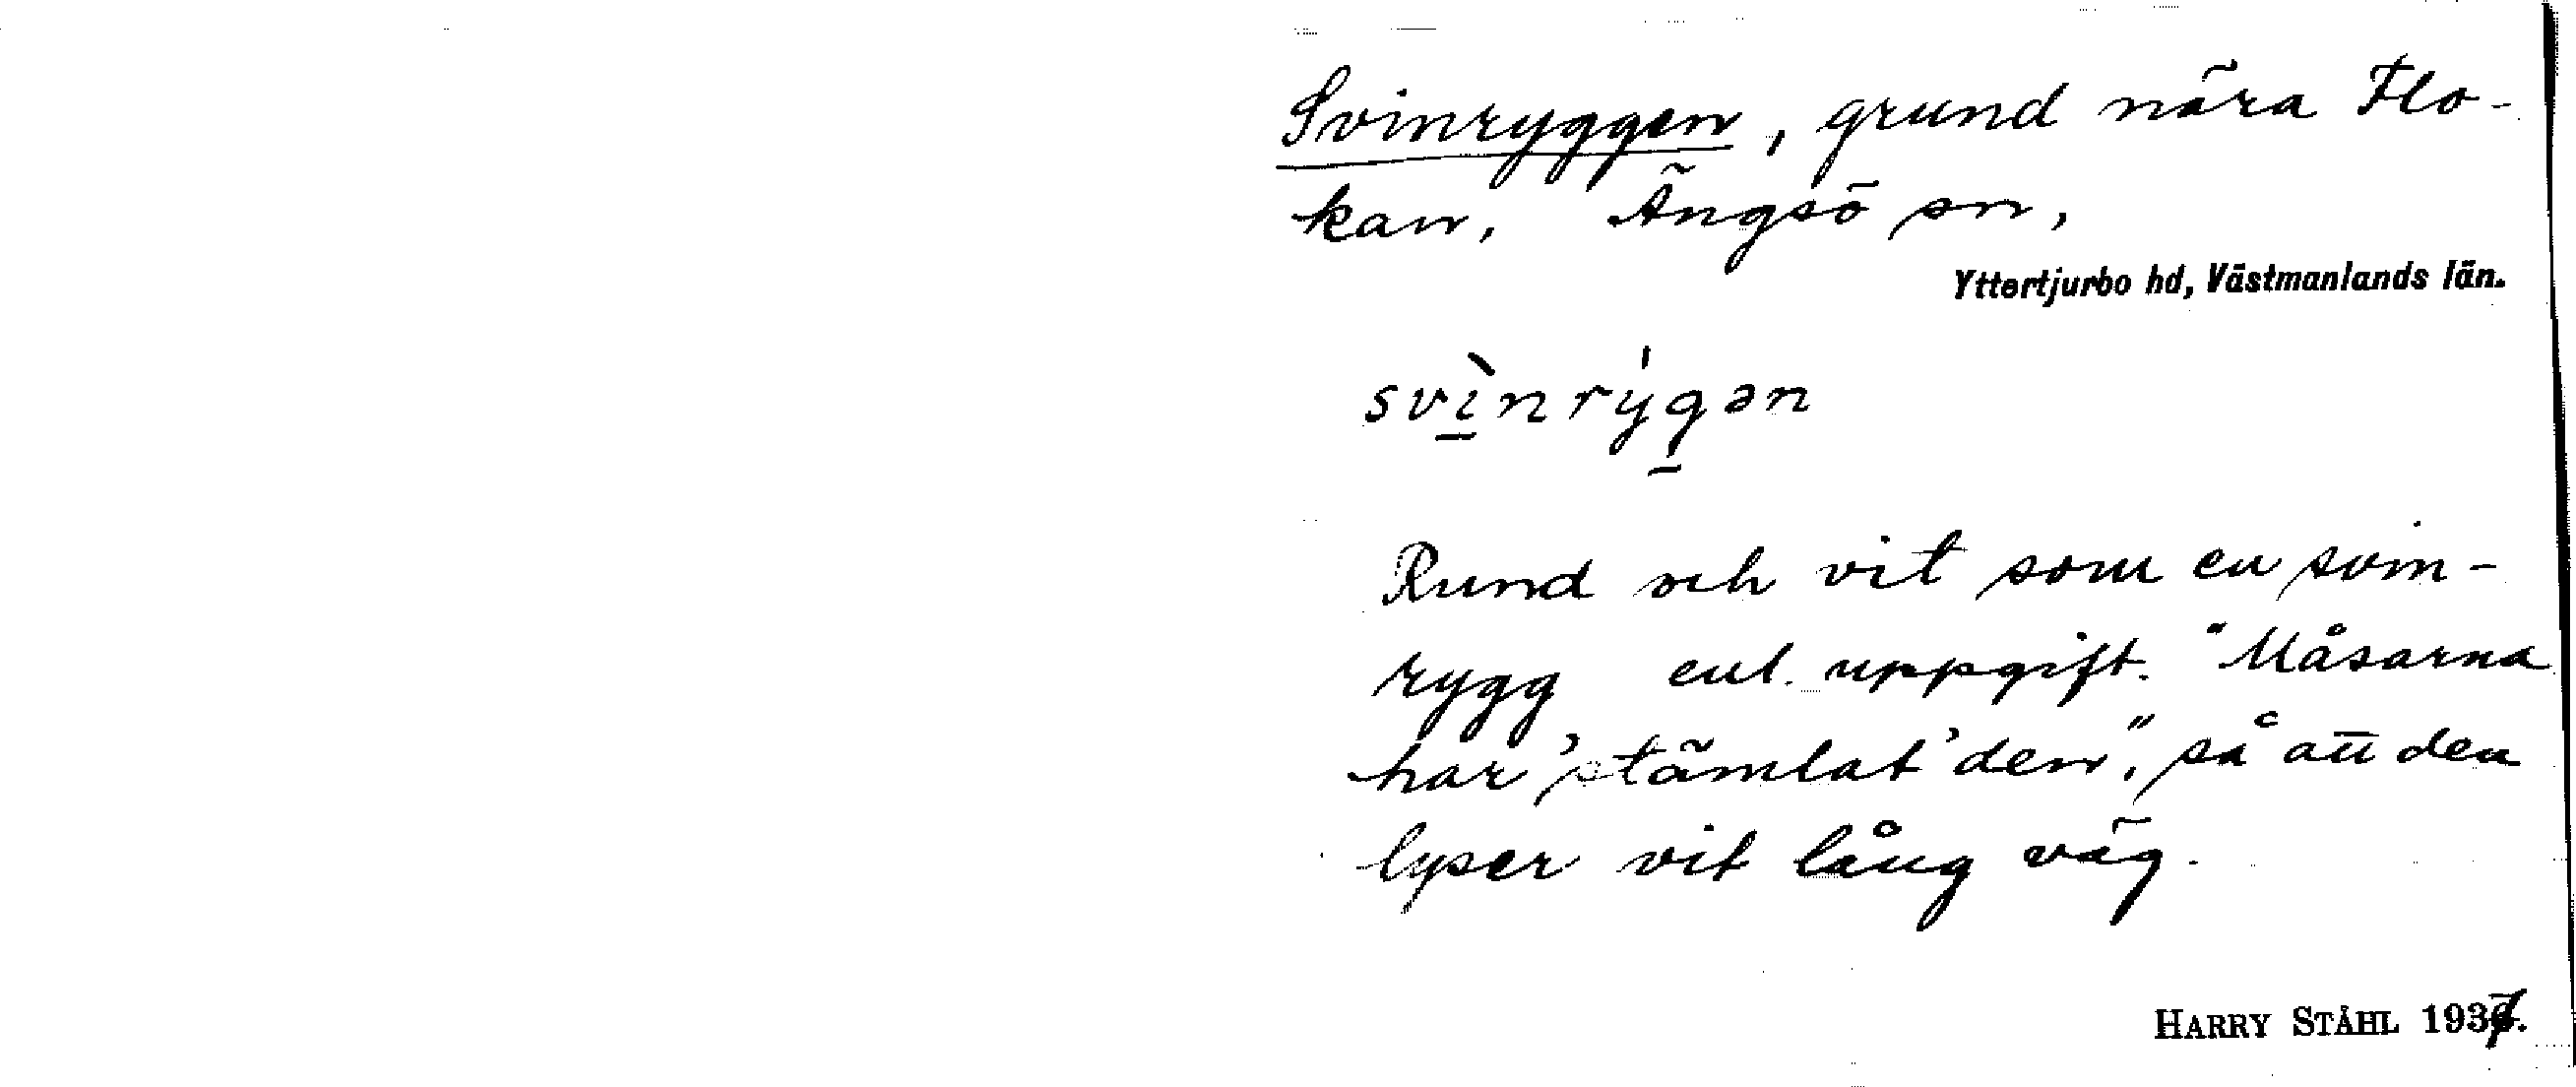 Svinryggen, grund nära Flo-
kan, Ängsö sn,
Yttertjurbo hd, Västmanlands län.
svì̲nrýg̲ən
Rund och vit som en svin-
rygg enl. uppgift. "Måsarna
har 'stämlat' den", så att den
lyser vit lång väg.
HARRY STÅHL 1937.